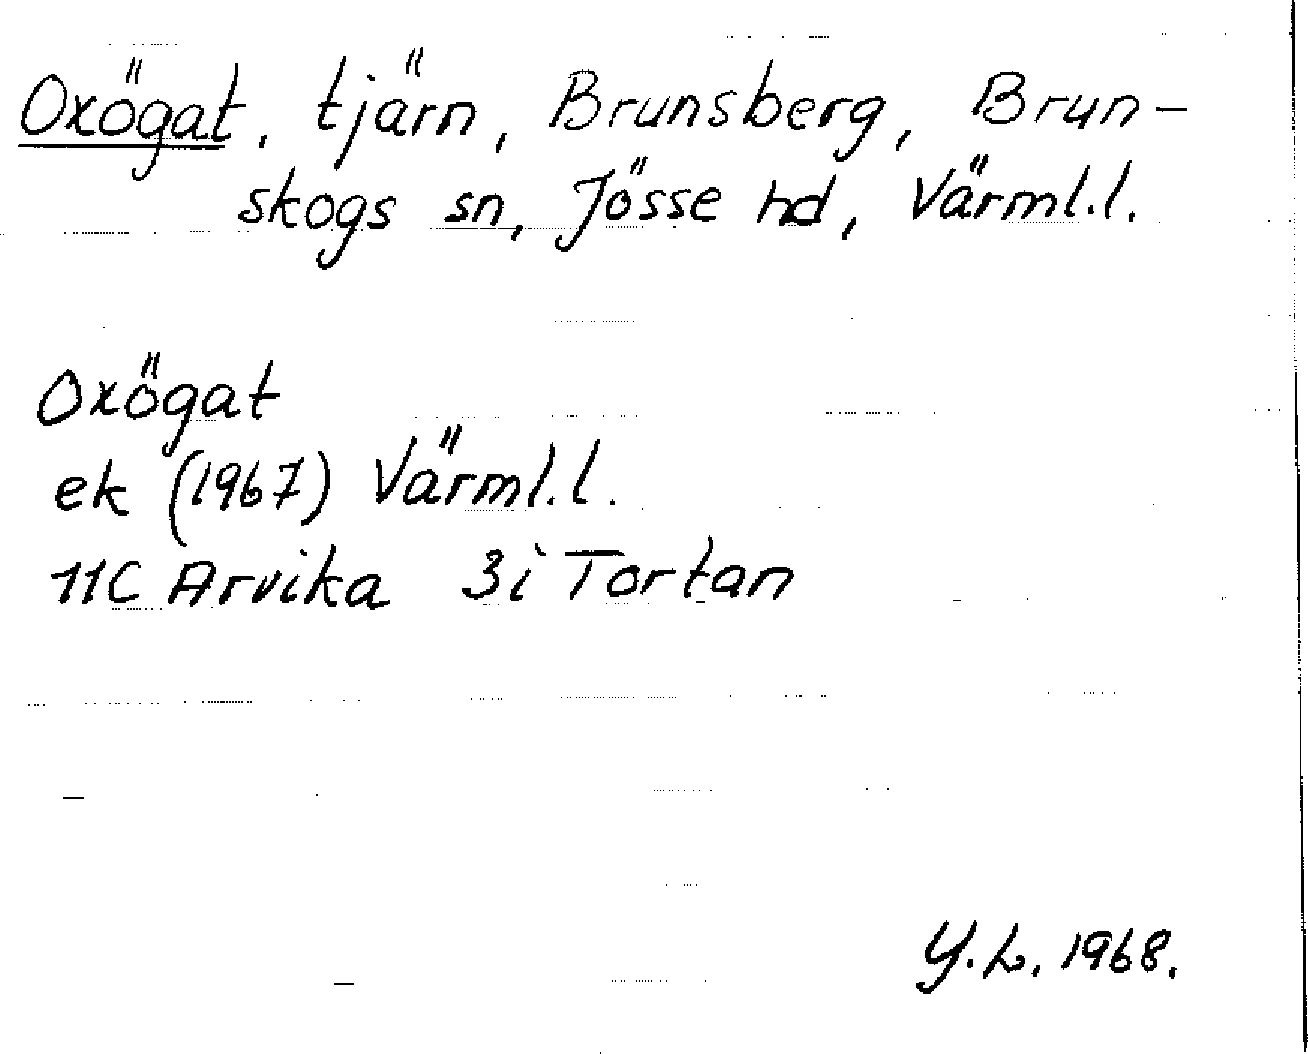 Oxögat, tjärn, Brunsberg, Brun-
skogs sn, Jösse hd, Värml.l.
Oxögat
ek (1967) Värml.l.
11C Arvika 3i Tortan
Y.L. 1968.